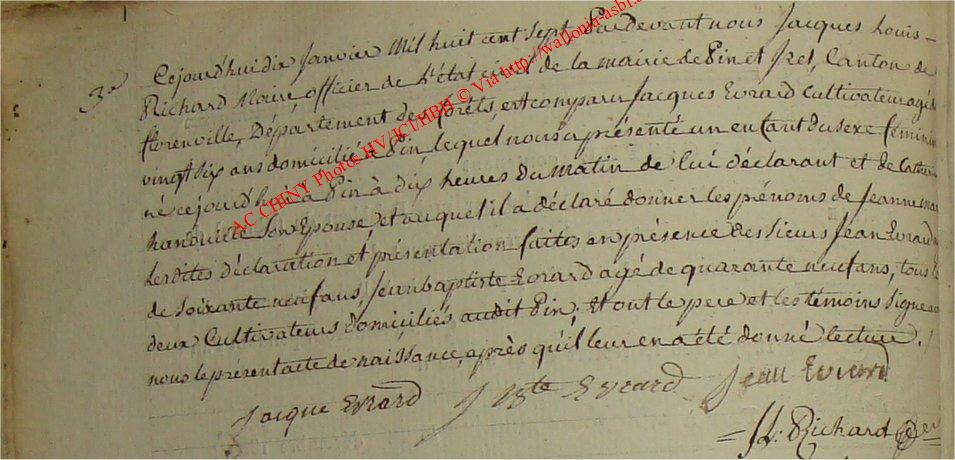 3e Cejourd'hui dix janvier Mil huit cent sept Pardevant nous Jacques Louis-
Richard Maire officier de l'état civil de la mairie de Pin et Izel, Canton de
florenville, Département des forêts, est comparu Jacques Evrard Cultivateur agé de
vingt six ans domicilié à Pin, lequel nous a présenté un enfant du sexe féminin
né cejourd'hui à Pin à dix heures du matin de lui déclarant et de Catherine
son Epouse, et auquel il a déclaré donner les prénoms de Jeanne
lesdites déclaration et présentation faites en présence des sieurs Jean Evrard
de soixante neuf ans, Jean baptiste Evrard agé de quarante neuf ans, tous
deux Cultivateurs domiciliés audit Pin; Et ont le pere et les témoins signé
nous le présent acte de naissance, après qu'il leur en a été donné lecture./
Jacque Evrard J Bte Evrard Jean Evrard
=JL: Richard
AC CHINY Photos HV/JCI/HBD © Via http://wallonia-asbl.